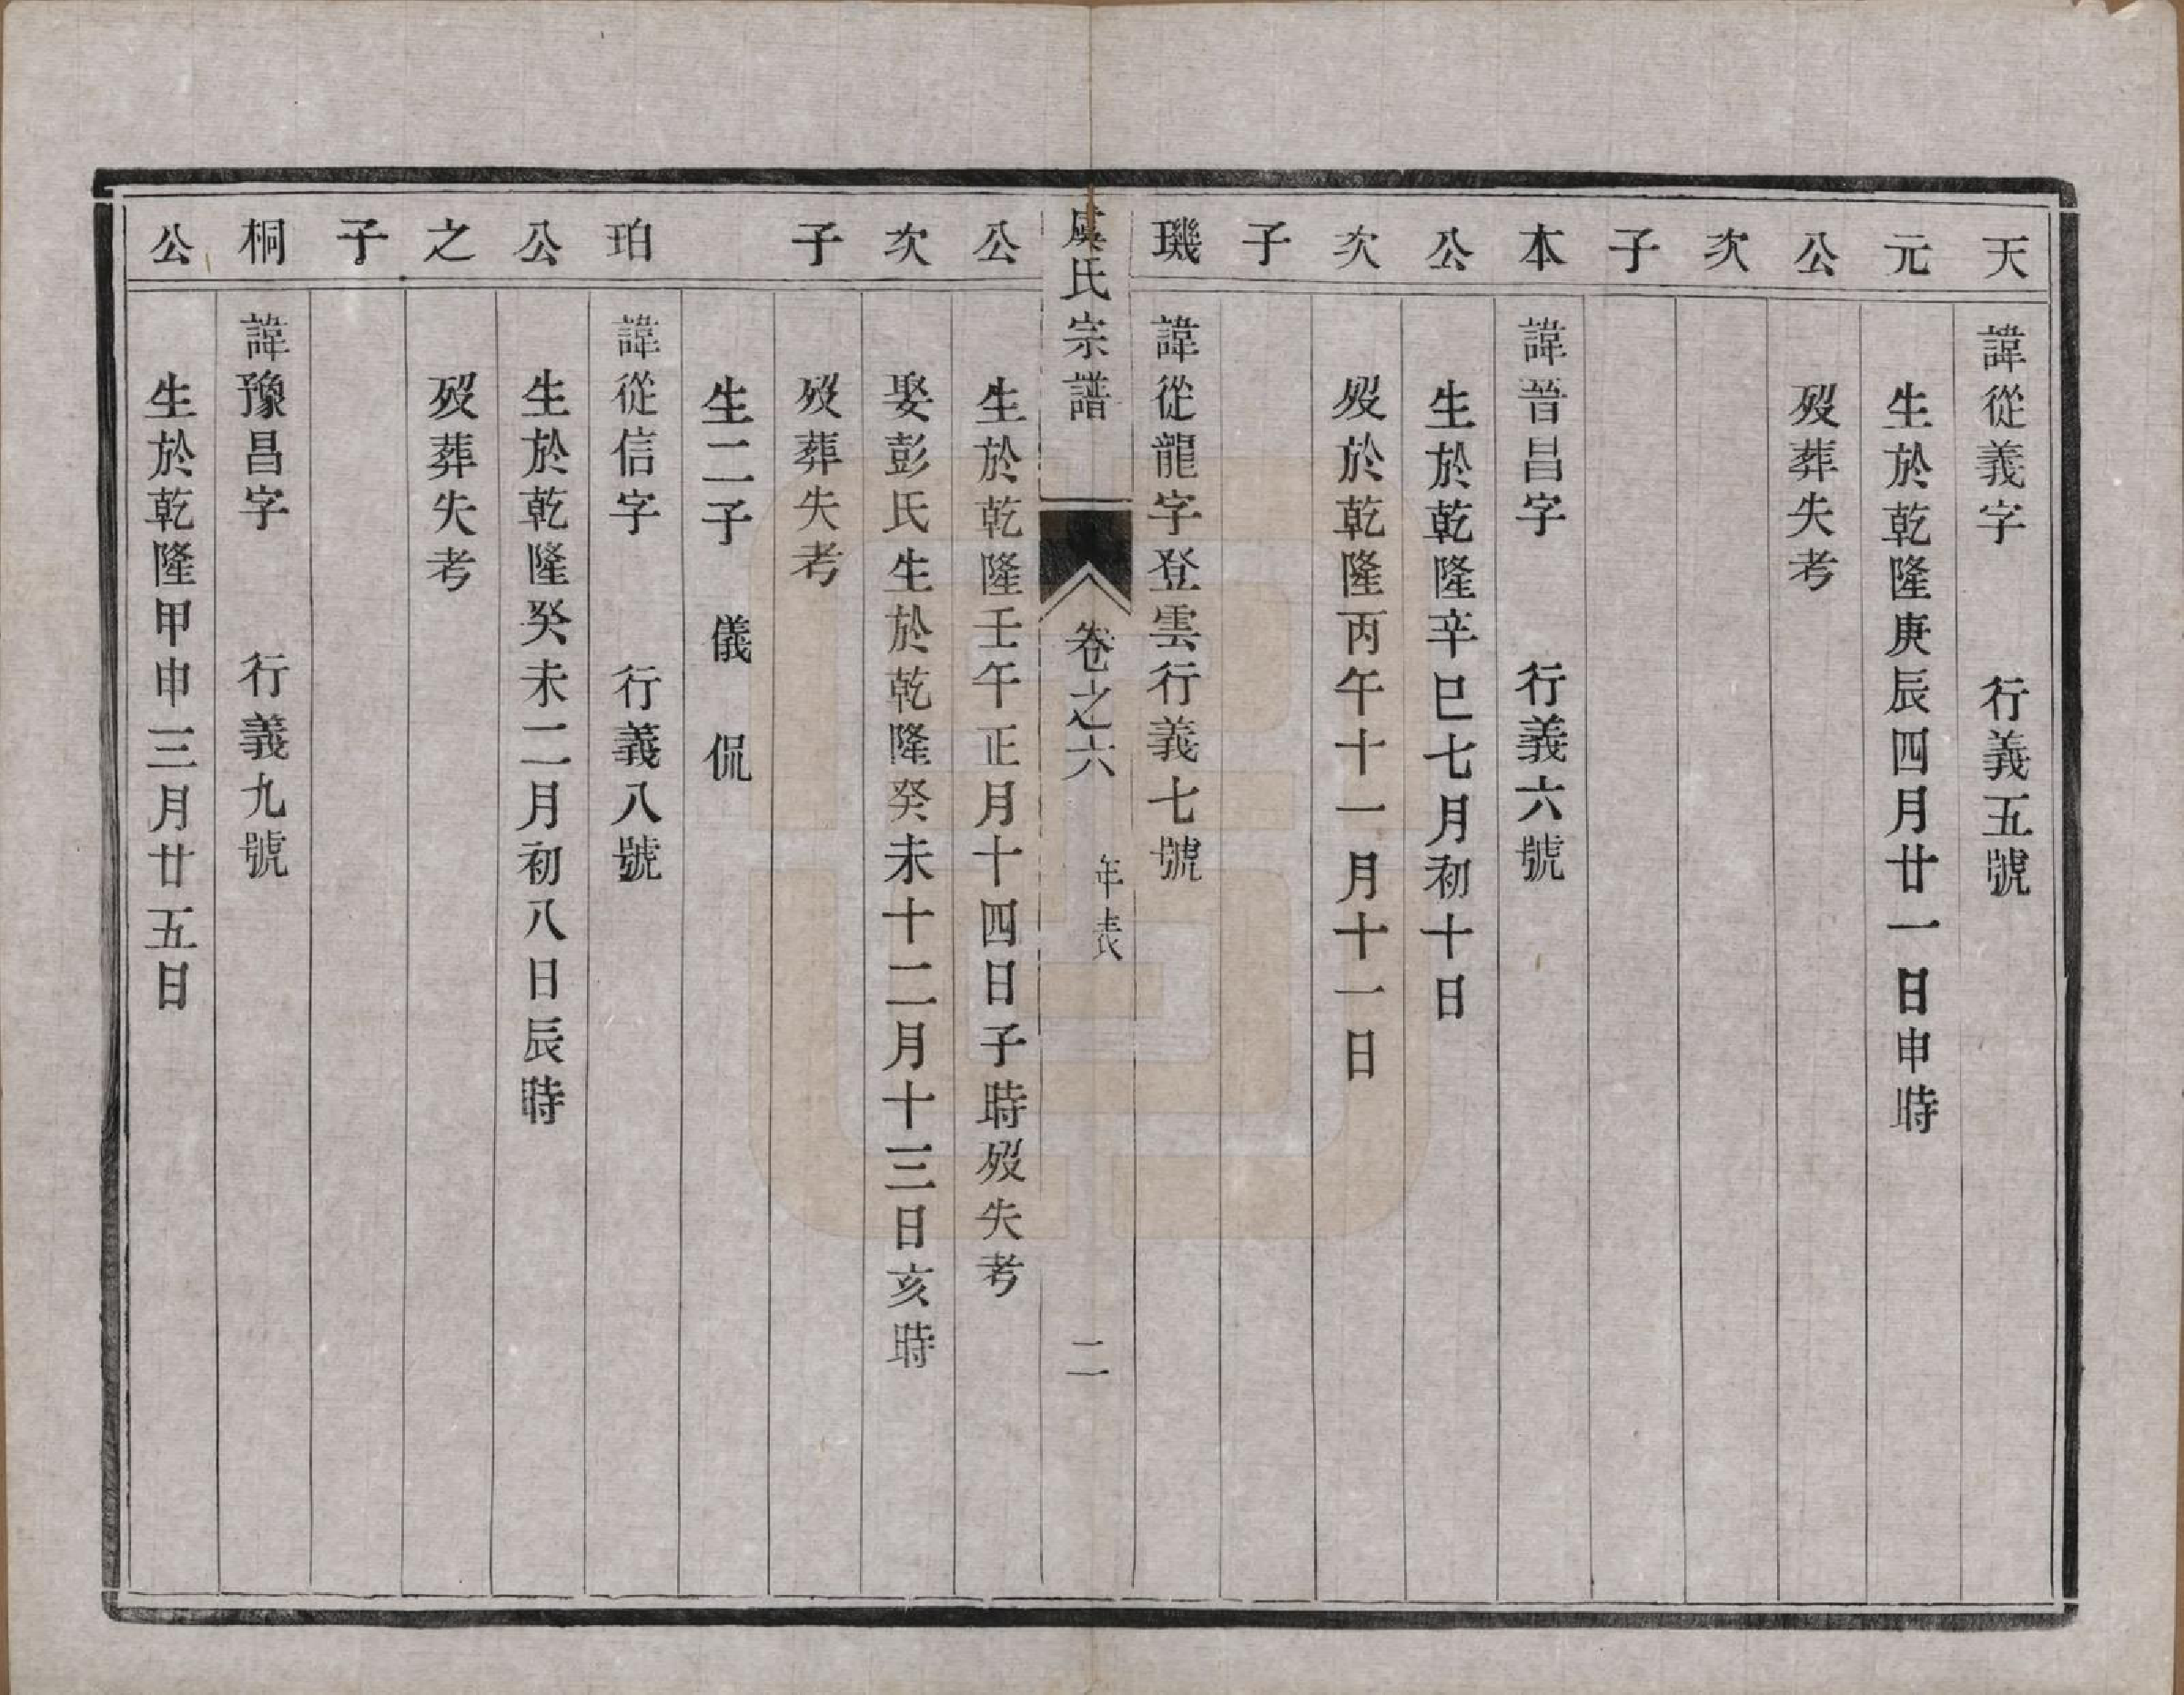 天 諱從義字 行義五號
元 生於乾隆庚辰四月廿一日申時
公 歿葬失考
次
子
本 諱晉昌字 行義六號
公 生於乾隆辛巳七月初十日
次 歿於乾隆丙午十一月十一日
子
璣 諱從龍字登雲行義七號
虞氏宗譜 卷之六 年表 二
公 生於乾隆壬午正月十四日子時歿失考
次 娶彭氏生於乾隆癸未十二月十三日亥時
子 歿葬失考
生二子 儀 侃
珀 諱從信字 行義八號
公 生於乾隆癸未二月初八日辰時
之 歿葬失考
子
桐 諱豫昌字 行義九號
公 生於乾隆甲申三月廿五日